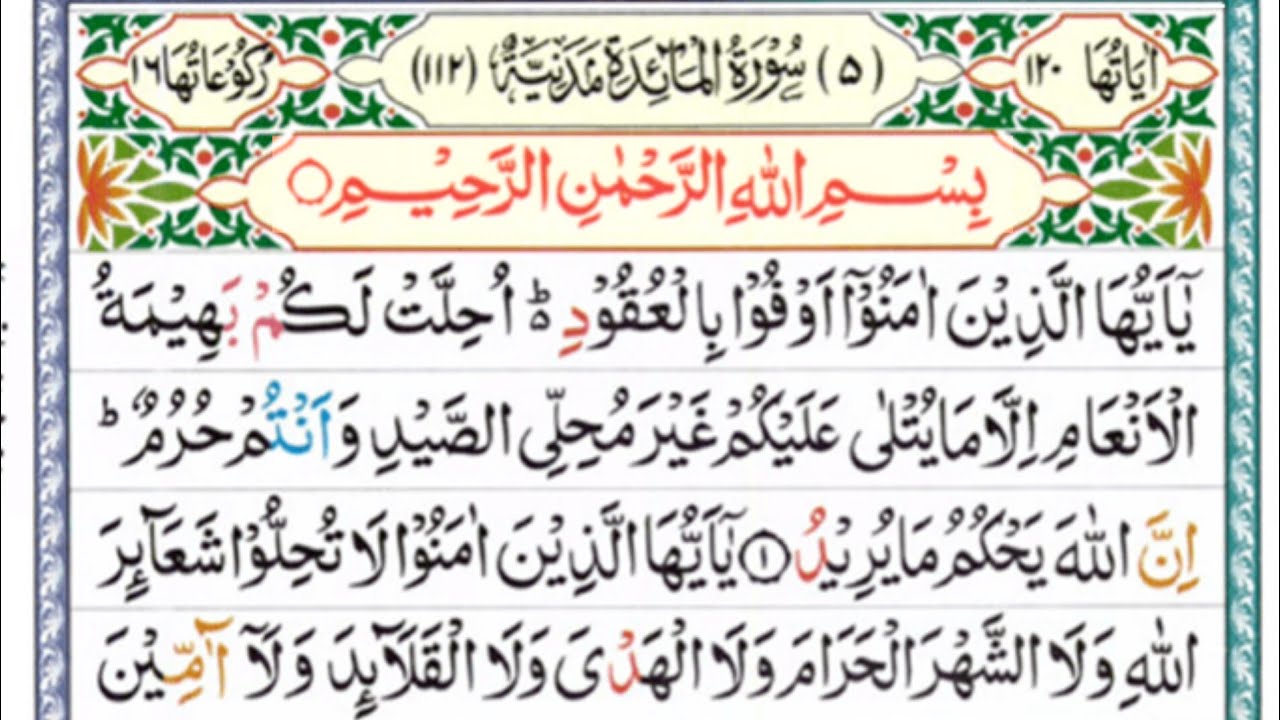 اٰيَاتُهَا ١٢٠ (٥) سُوْرَةُ الْمَآئِدَةِ مَدَنِيَّةٌ (١١٢) رُكُوْعَاتُهَا ١٦
بِسْمِ اللهِ الرَّحْمٰنِ الرَّحِيْمِ ○
يٰٓاَيُّهَا الَّذِيْنَ اٰمَنُوْٓا اَوْفُوْا بِالْعُقُوْدِ ؕ۬ اُحِلَّتْ لَكُمْ بَهِيْمَةُ
الْاَنْعَامِ اِلَّا مَا يُتْلٰى عَلَيْكُمْ غَيْرَ مُحِلِّى الصَّيْدِ وَاَنْتُمْ حُرُمٌ ؕ
اِنَّ اللهَ يَحْكُمُ مَا يُرِيْدُ ۝١ يٰٓاَيُّهَا الَّذِيْنَ اٰمَنُوْا لَا تُحِلُّوْا شَعَآئِرَ
اللهِ وَلَا الشَّهْرَ الْحَرَامَ وَلَا الْهَدْىَ وَلَا الْقَلَآئِدَ وَلَآ آٰمِّيْنَ